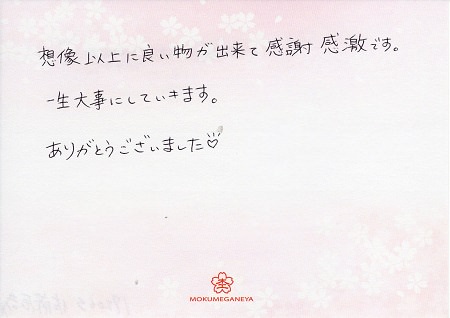 想像以上に良い物が出来て感謝感激です。
一生大事にしていきます。
ありがとうございました♡
杢
MOKUMEGANEYA